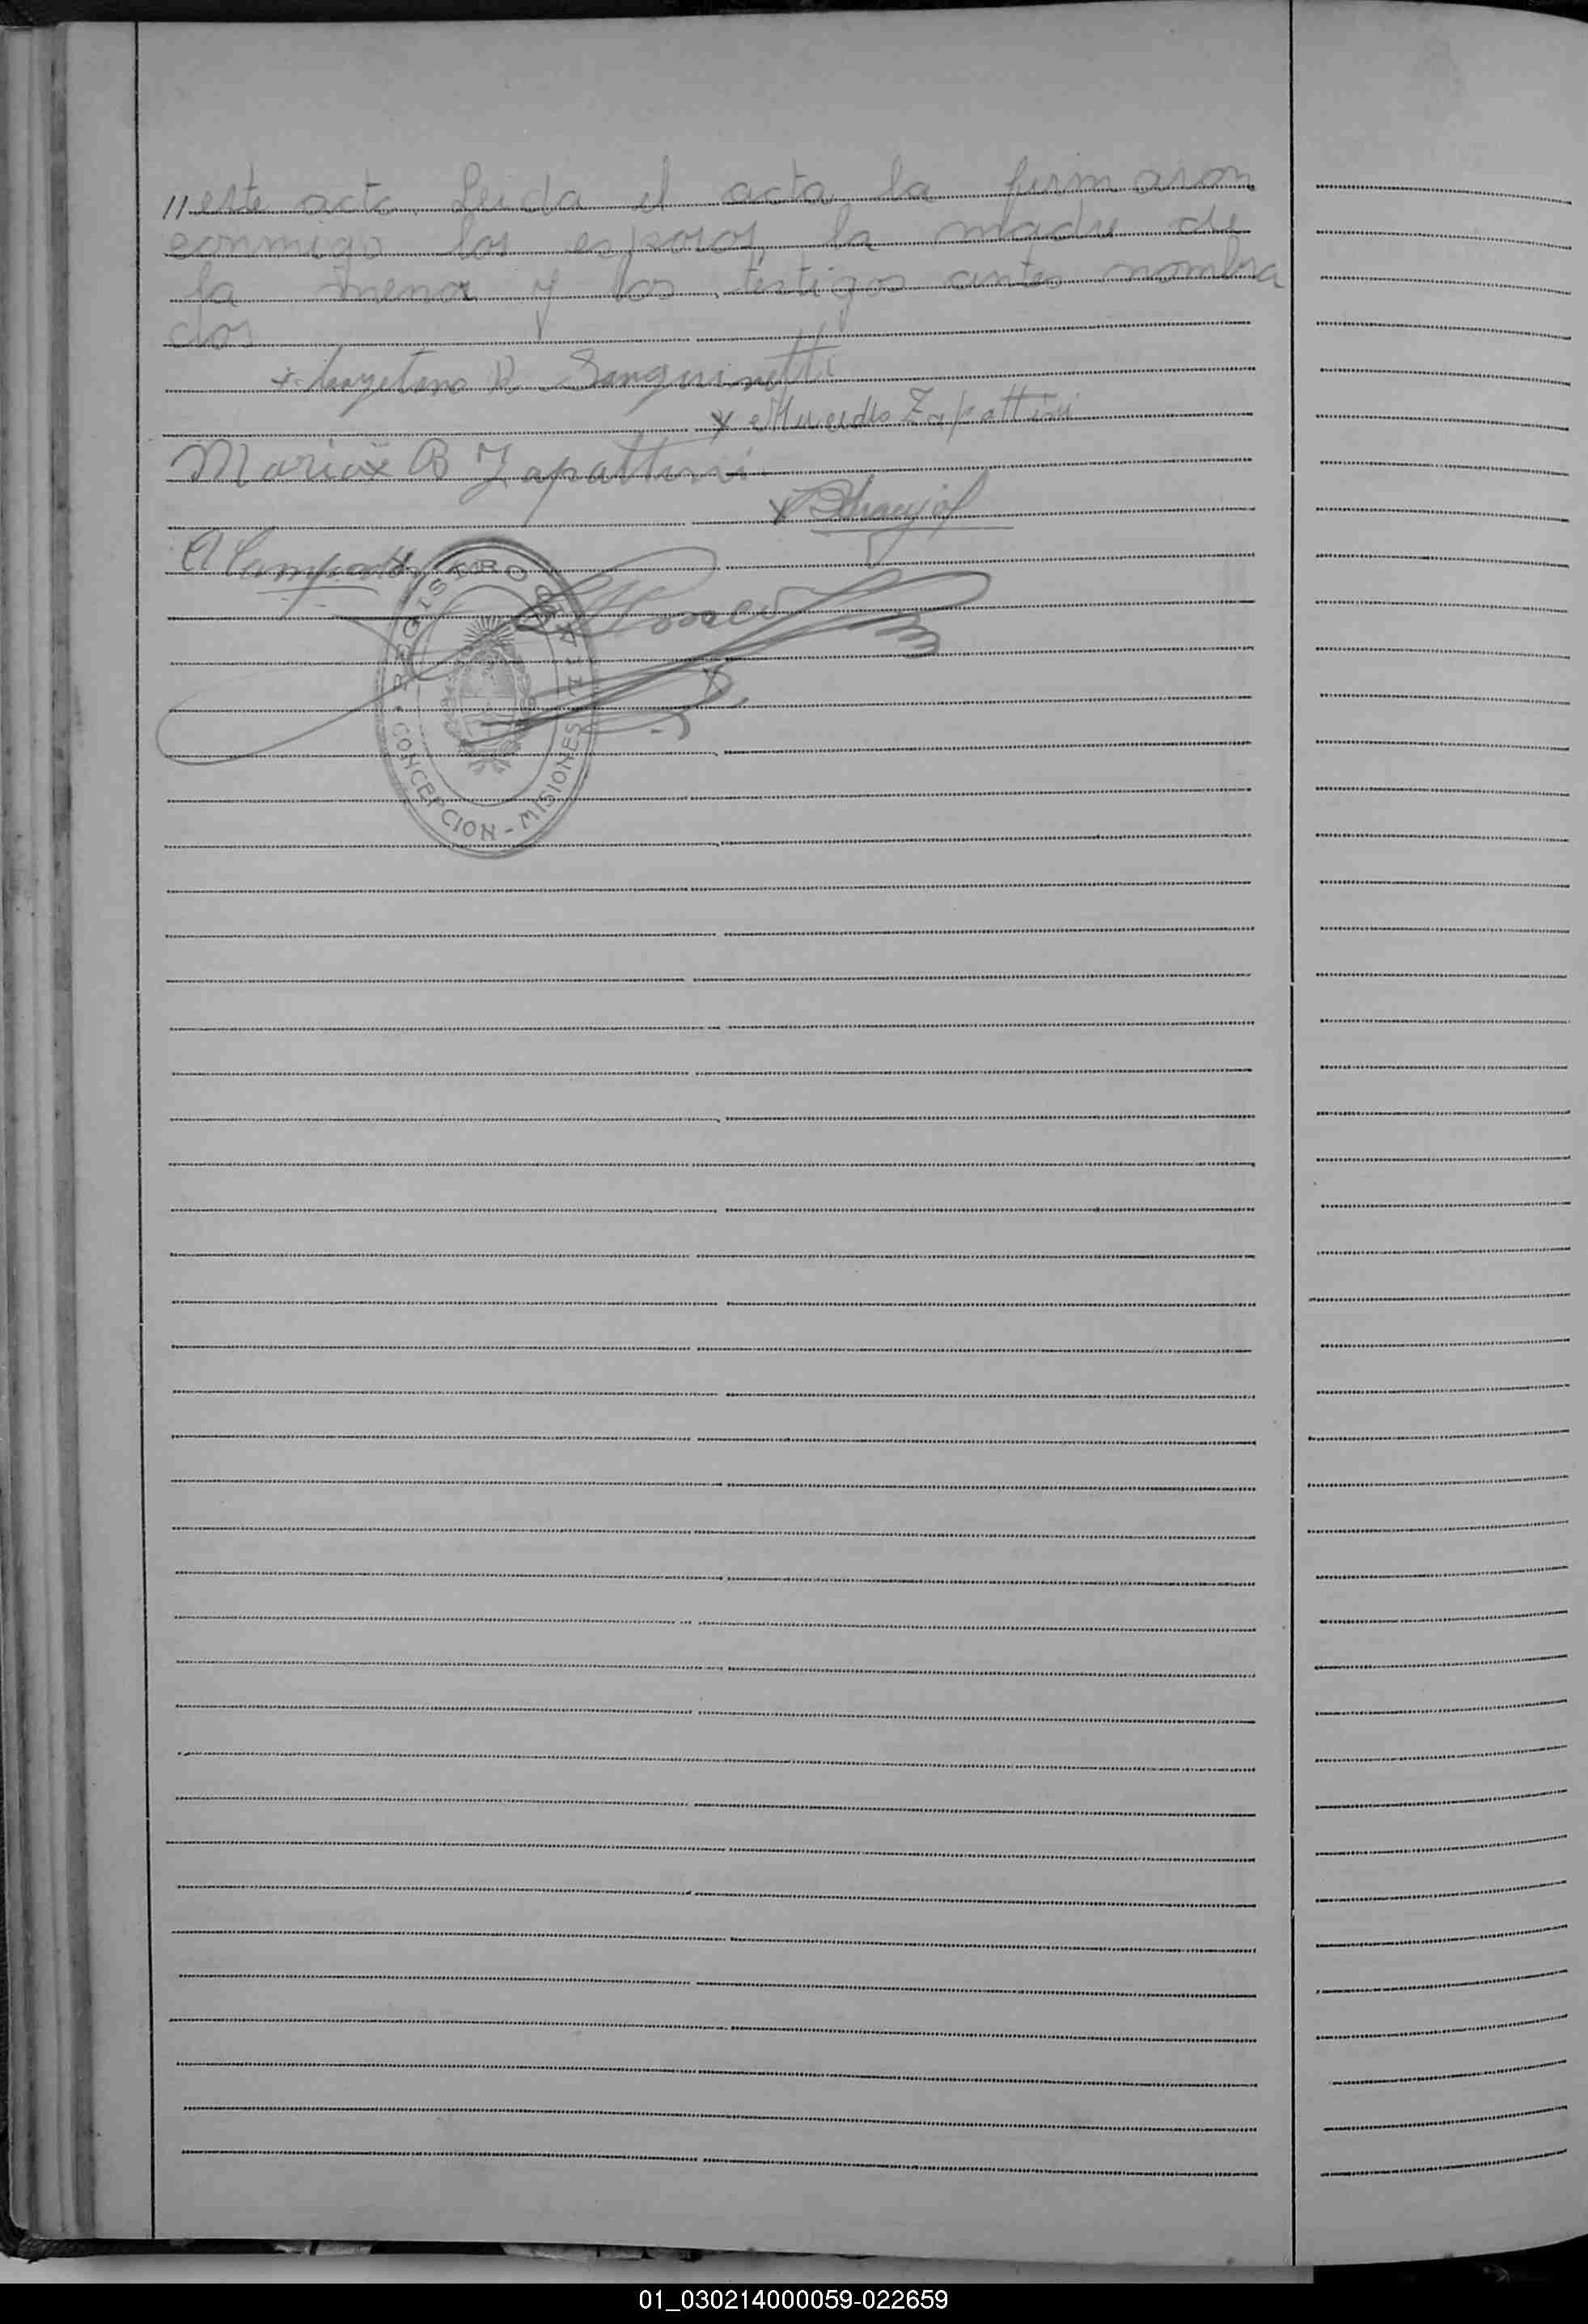 // este acto. Leida el acta la firmaron
conmigo los esposos, la madre de
la menor y los testigos antes nombra
dos
x Cayetano R Sanguinetti
x Mercedes Zapattini
Maria B Zapattini
x
A
REGISTRO CIVIL
CONCEPCION - MISIONES
01_030214000059-022659